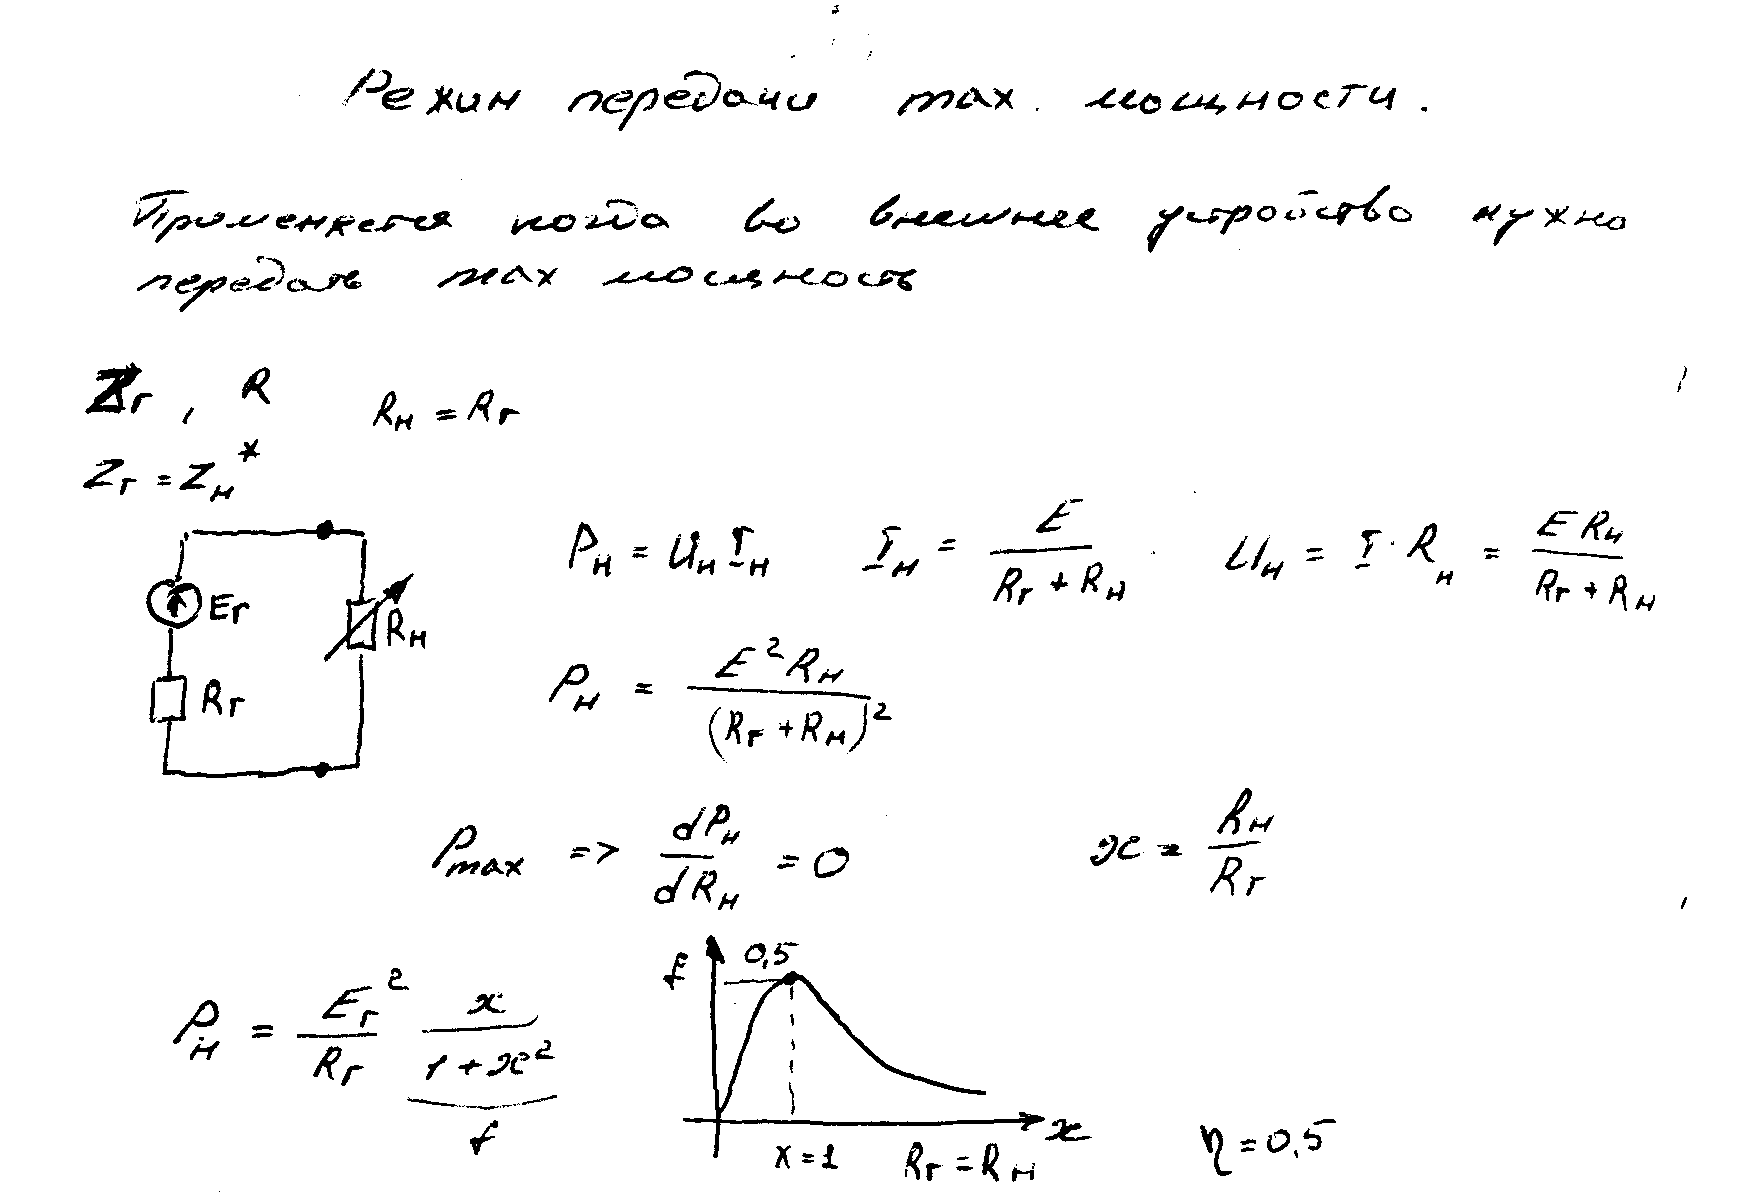 Режим передачи max. мощности.
Применяется когда во внешнее устройство нужно
передать max мощность
Zг, R Rн = Rг
Zг = Zн*
Pн = Uн Iн Iн = E / (Rг + Rн) Uн = I · Rн = E Rн / (Rг + Rн)
Eг
Rн
Rг
Pн = E² Rн / (Rг + Rн)²
Pmax => dPн / dRн = 0 x = Rн / Rг
Pн = Eг² / Rг x / (1 + x²)
f
f
0,5
x
x = 1 Rг = Rн
η = 0,5